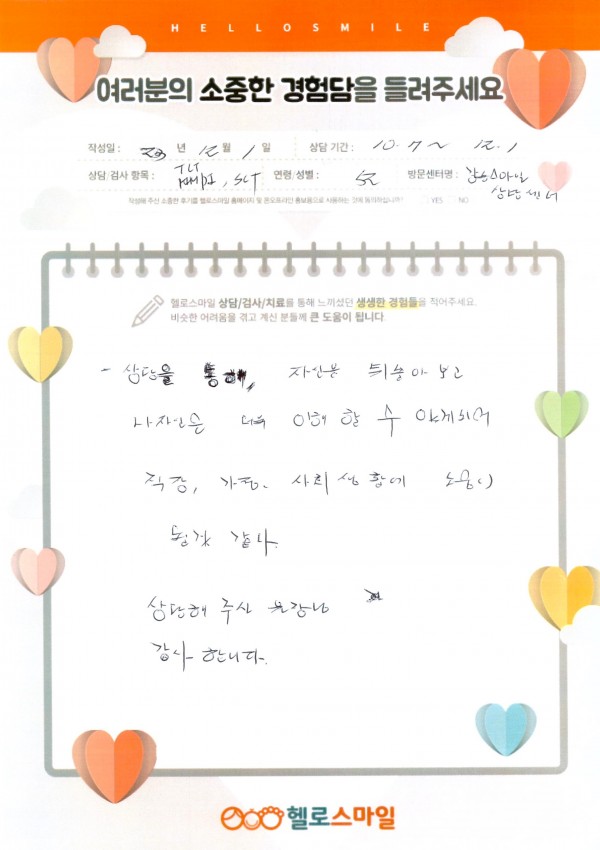 HELLOSMILE
여러분의 소중한 경험담을 들려주세요
작성일 : 23 년 12 월 1 일 상담 기간 : 10. 7 ~ 12. 1
상담/검사 항목 : TLT , SCT 연령/성별 : 방문센터명 : 스마일
상담센터
작성해 주신 소중한 후기를 헬로스마일 홈페이지 및 온오프라인 홍보용으로 사용하는 것에 동의하십니까? YES NO
헬로스마일 상담/검사/치료를 통해 느끼셨던 생생한 경험들을 적어주세요.
비슷한 어려움을 겪고 계신 분들께 큰 도움이 됩니다.
- 상담을 통해, 자신을 되돌아 보고
나 자신을 더욱 이해 할 수 있게되어
직장, 가정, 사회 생활에 도움이
될것 같다.
상담해 주신 원장님
감사 합니다.
헬로스마일